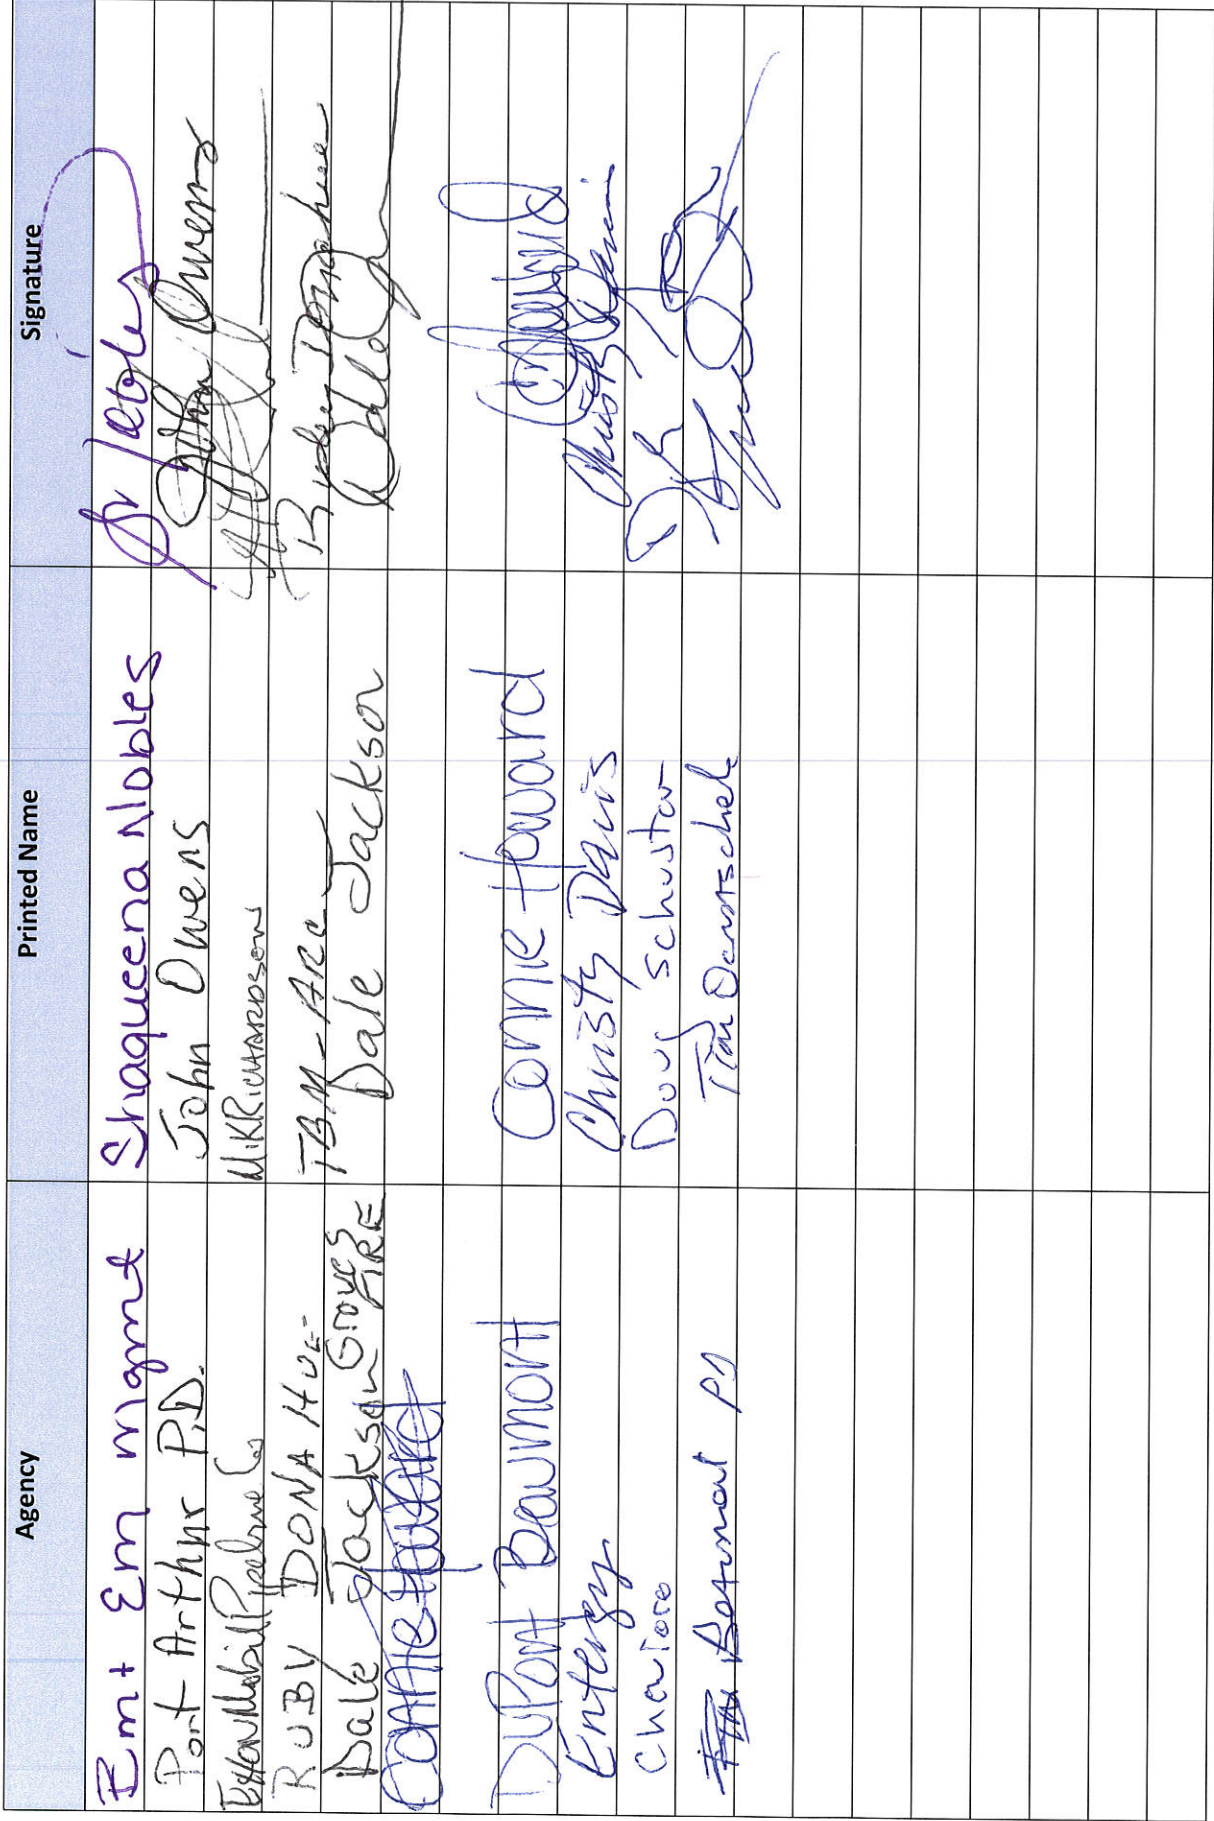 Agency Printed Name Signature
Bmt Em Mgmt Shaqueena Nobles
Port Arthur P.D. John Owens John Owens
ExxonMobil Pipeline Co MIKRICHARDSON
RUBY DONAHUE TBM-ARC Ruby Donahue
Dale Jackson Groves FIRE Dale Jackson
Connie Howard
DuPont Beaumont Connie Howard
Entergy Christy Davis Christy Davis
Doug Schuster
Beaumont PD Tim Ocnoschel